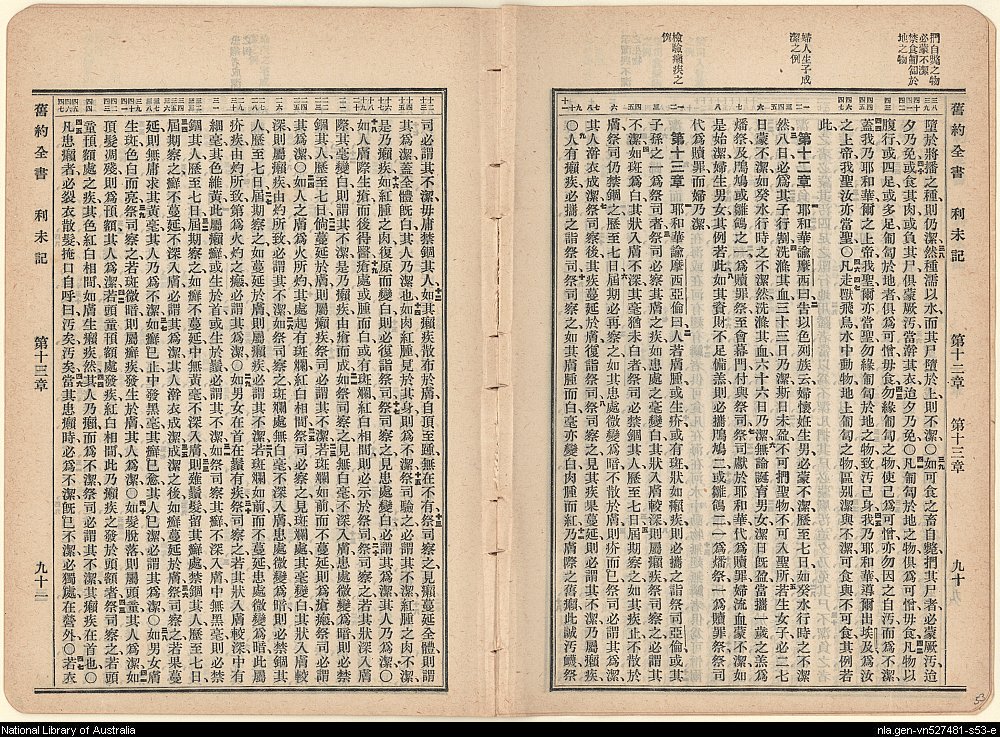 捫自斃之物
必蒙不潔
禁食匍匐於
地之物
婦人生子成
潔之例
檢驗癩疾之
例
舊約全書 利未記 第十二章 第十三章
墮於將播之種則仍潔然種濡以水而其尸墮於上則不潔〇如可食之畜自斃捫其尸者必蒙厥汚迨
夕乃免或食其肉或負其尸俱蒙厥汚當澣其衣迨夕乃免〇凡匍匐於地之物俱爲可憎毋食凡物以
腹行或四足或多足匍匐於地者俱爲可憎毋食勿緣匍匐之物使己爲可憎亦勿因之自汚而爲不潔
蓋我乃耶和華爾之上帝我聖爾亦當聖勿緣匍匐於地之物致汚己身我乃耶和華導爾出埃及爲汝
之上帝我聖汝亦當聖〇凡走獸飛鳥水中動物地上匍匐之物區別潔與不潔可食與不可食其例若
此
第十二章 耶和華諭摩西曰告以色列族云婦懷妊生男必蒙不潔歷至七日如癸水行時之不潔
然八日必爲其子行割洗滌其血三十三日乃潔斯日未盈不可捫聖物不可入聖所若生女子必二七
日蒙不潔如癸水行時之不潔然洗滌其血六十六日乃潔無論誕育男女潔日旣盈當攜一歲之羔爲
燔祭及鳲鳩或雛鴿之一爲贖罪祭至會幕門付與祭司祭司獻於耶和華代爲贖罪婦流血蒙不潔如
是始潔婦生男女其例若此如其貲財不足備羔則必攜鳲鳩二或雛鴿二一爲燔祭一爲贖罪祭祭司
代爲贖罪而婦乃潔
第十三章 耶和華諭摩西亞倫曰人若膚腫或生疥或有斑狀如癩疾則必攜之詣祭司亞倫或其
子孫之一爲祭司者祭司必察其膚之疾如患處之毫變白其狀入膚較深則屬癩疾祭司察之必謂其
不潔如斑白其狀入膚不深其毫猶未白者祭司必禁錮其人歷至七日屆期察之如其疾止不散於
膚祭司必仍禁錮之歷至七日屆期必再察之如其患處微變爲暗不散於膚則疥而已祭司必謂其潔
其人澣衣成潔祭司察後其疾蔓延於膚復詣祭司祭司察之見其疾果蔓延則必謂其不潔乃屬癩疾
〇人有癩疾必攜之詣祭司祭司察之如其膚腫而白其毫亦變白肉腫而紅乃膚際之舊癩此誠汚衊祭
司必謂其不潔毋庸禁錮其人如其癩疾散布於膚自頂至踵無在不有祭司察之見癩蔓延全體則謂
其人爲潔蓋全體旣白其人乃潔也如肉紅腫見於其身則爲不潔祭司驗之必謂其不潔紅腫之肉不潔
是乃癩疾如紅腫之肉復原而變白則必復詣祭司祭司察之見患處變白必謂其爲潔其人潔矣〇
如人膚際生瘡而後得醫瘡處或腫而白或有斑斕紅白相間則必示於祭司祭司察之若其狀深入膚
際其毫變白則謂其不潔是乃癩疾由瘡而成如祭司察之見無白毫不深入膚其色微變爲暗則必禁
錮其人歷至七日倘蔓延於膚則屬癩疾祭司必謂其不潔若斑斕如前而不蔓延則爲瘡瘢祭司必謂
其爲潔〇如人之膚爲火所灼其處起有斑斕紅白相間祭司察之見斑斕處其毫變白其狀入膚較
深則屬癩疾由灼所致必謂其不潔如祭司察之斑斕處無白毫不深入膚患處微變爲暗則必禁錮其
人歷至七日屆期察之如蔓延於膚則屬癩疾必謂其不潔若斑斕如前而不蔓延患處微變爲暗此屬
疥疾由灼所致第爲火灼之瘢必謂其爲潔〇如男女在首在鬚有疾祭司察之若其狀入膚較深中有
細毫其色維黃此屬癩癬或生於首或生於鬚必謂其不潔如祭司察其癬不深入膚中無黑毫則必禁
錮其人歷至七日屆期察之如癬不蔓延中無黃毫不深入膚則薙鬚髮留其癬處禁錮其人歷至七日
屆期察之癬不蔓延不深入膚必謂其爲潔其人澣衣成潔成潔之後如癬蔓延於膚祭司察之若果蔓
延則無庸求其黃毫其人乃爲不潔如癬已止中發黑毫其癬已愈其人已潔必謂其爲潔〇如男女膚
生斑色白而亮祭司察之若斑微暗則屬癬疾發生於膚其人爲潔〇如髮脫落則屬頭童其人爲潔如
頂髮凋殘則爲預額其人爲潔若頭童預額處發疾紅白相間此乃癩疾之發於頭額者祭司察之若頭
童預額處之疾其色紅白相間如膚生癩疾然其人乃癩而爲不潔祭司必謂其不潔其癩疾在首也〇
凡患癩者必裂衣散髮掩口自呼曰汚矣汚矣當其患癩時必爲不潔旣已不潔必獨處在營外〇若衣
舊約全書 利未記 第十三章
National Library of Australia
nla.gen-vn527481-s53-e